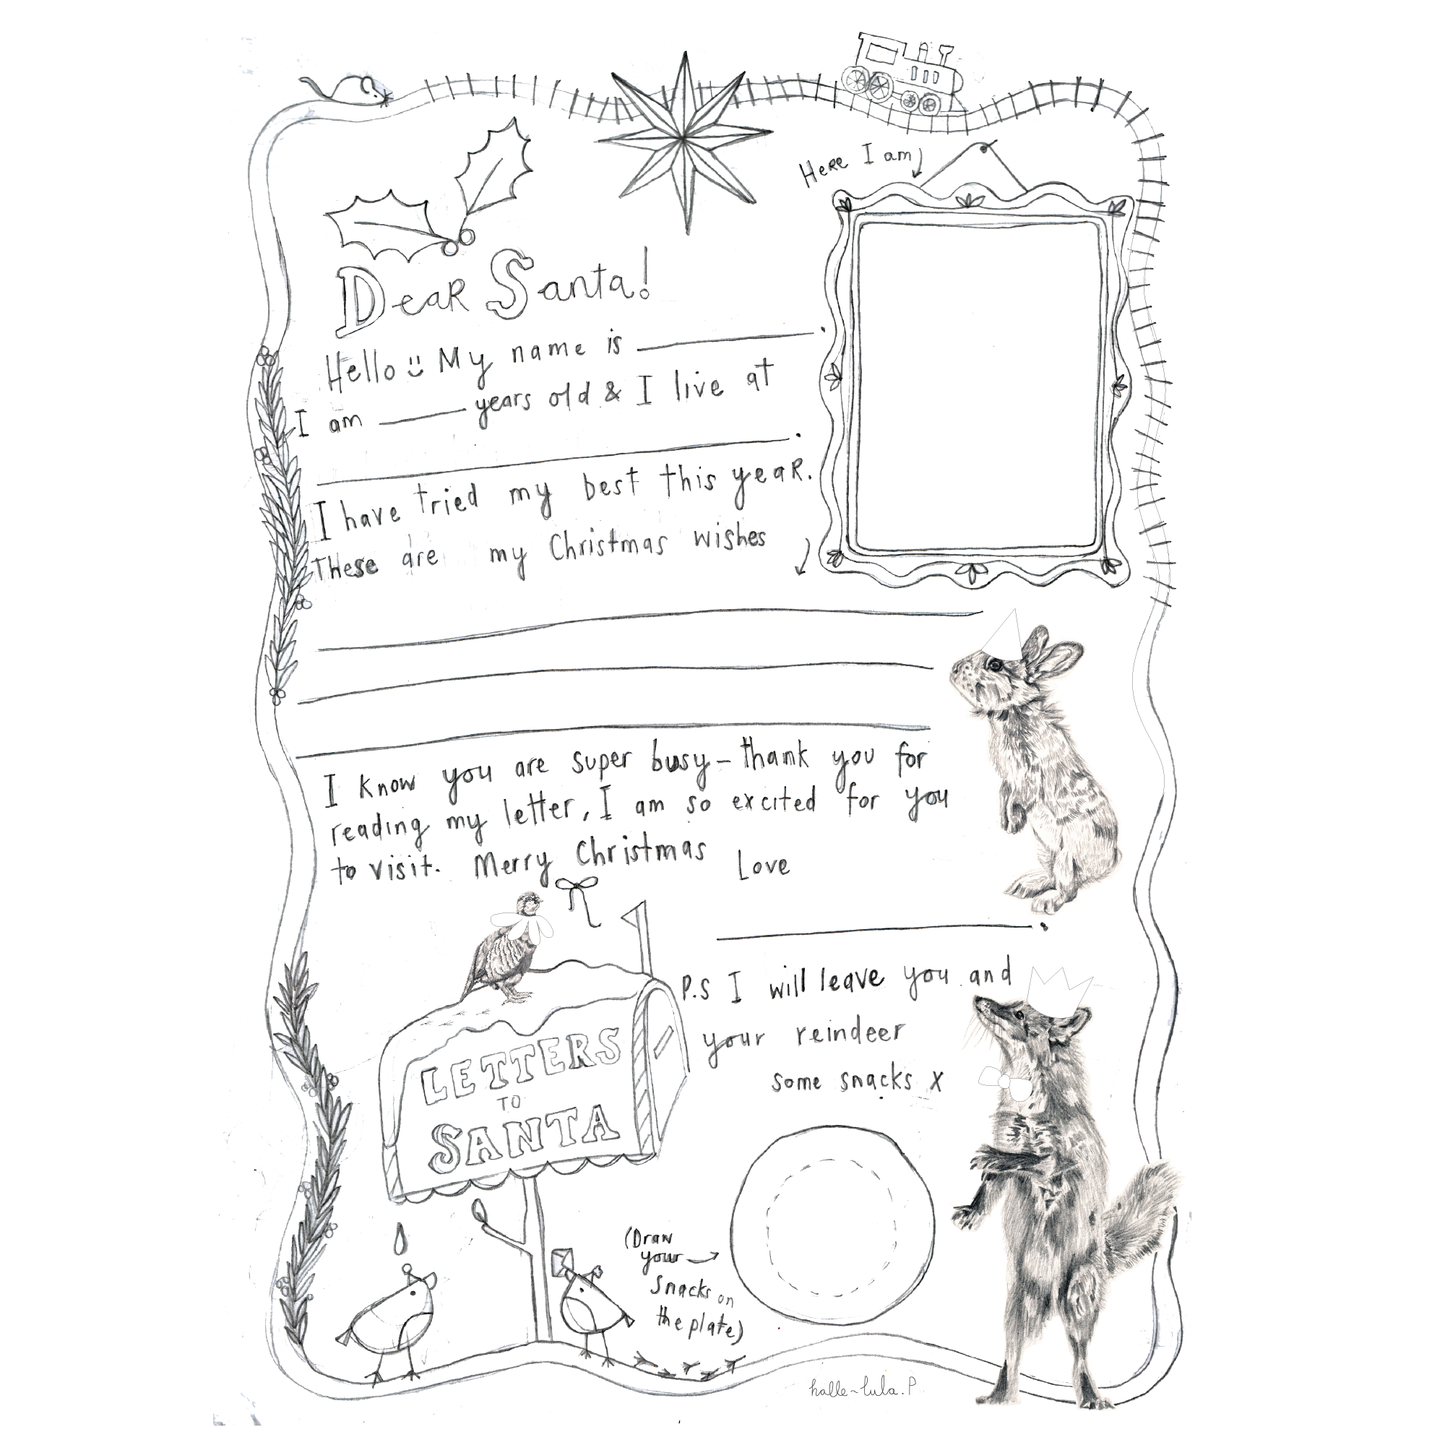 Here I am
Dear Santa!
Hello My name is
I am years old & I live at
I have tried my best this year.
These are my Christmas wishes
I know you are super busy – thank you for
reading my letter, I am so excited for you
to visit. Merry Christmas Love
P.S I will leave you and
your reindeer
some snacks x
LETTERS
TO
SANTA
(Draw
your
snacks on
the plate)
halle-lula.P